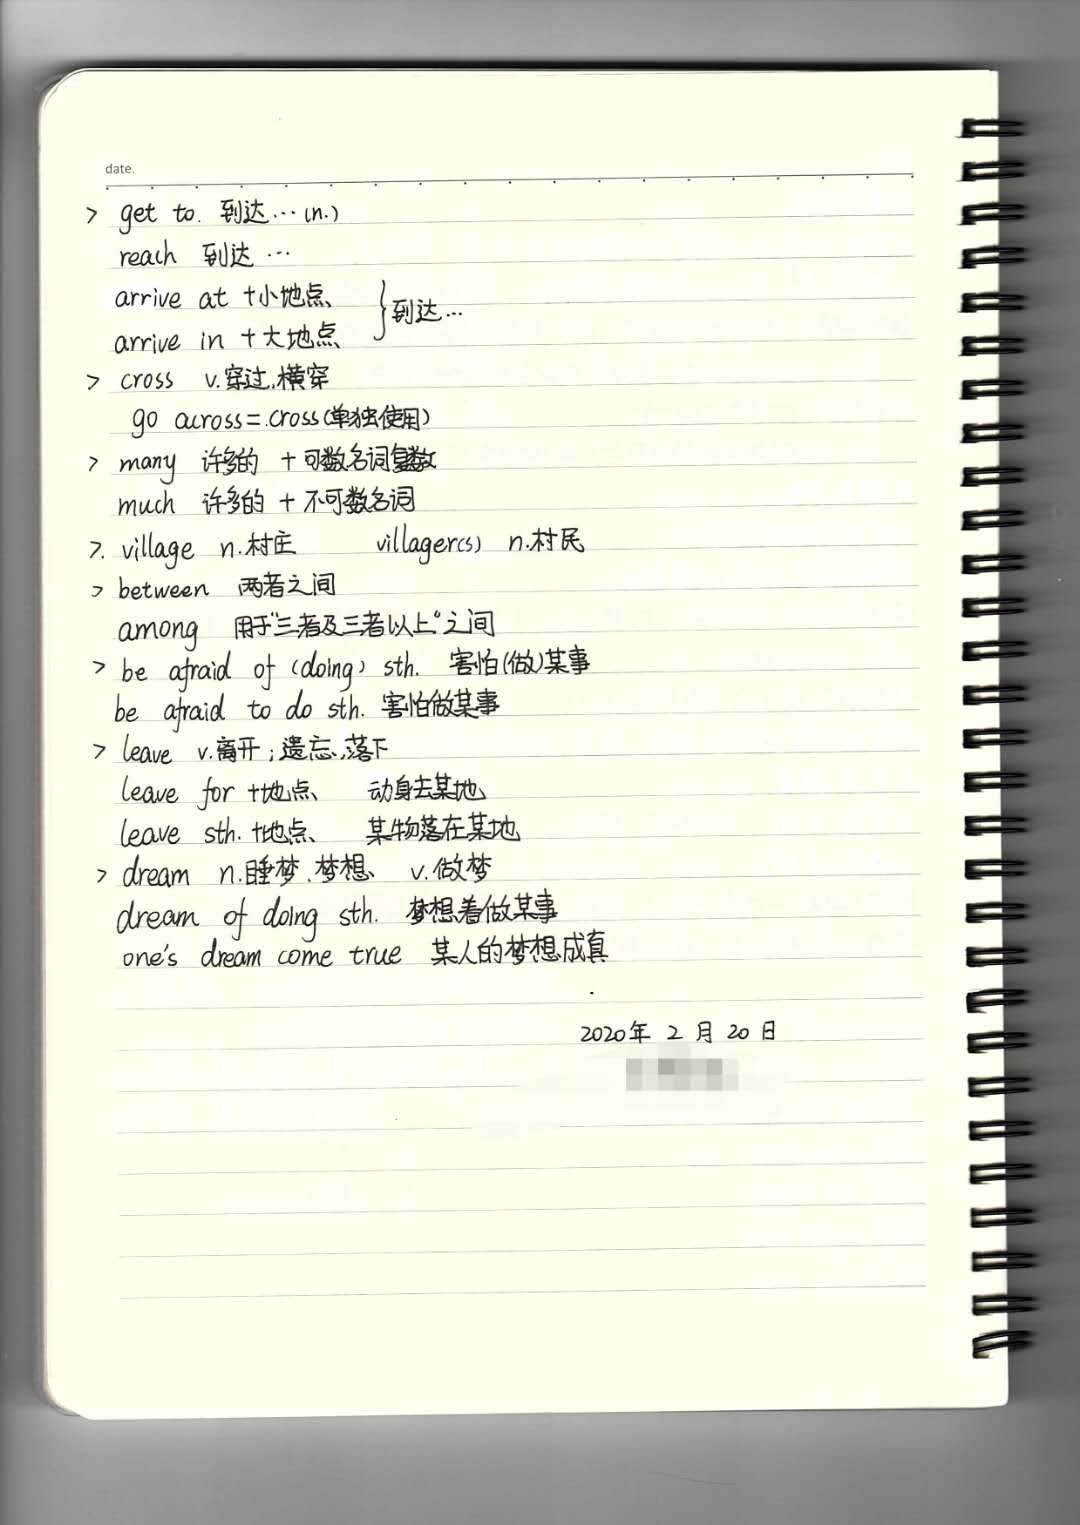 date.
> get to. 到达…(n.)
reach 到达…
arrive at +小地点
arrive in +大地点 } 到达…
> cross v.穿过,横穿
go across=.cross(单独使用)
> many 许多的 +可数名词复数
much 许多的 + 不可数名词
>. village n.村庄 villager(s) n.村民
> between 两者之间
among 用于"三者及三者以上"之间
> be afraid of (doing) sth. 害怕(做)某事
be afraid to do sth. 害怕做某事
> leave v.离开;遗忘,落下
leave for +地点 动身去某地
leave sth. +地点 某物落在某地
> dream n.睡梦.梦想 v.做梦
dream of doing sth. 梦想着做某事
one's dream come true 某人的梦想成真
2020年2月20日